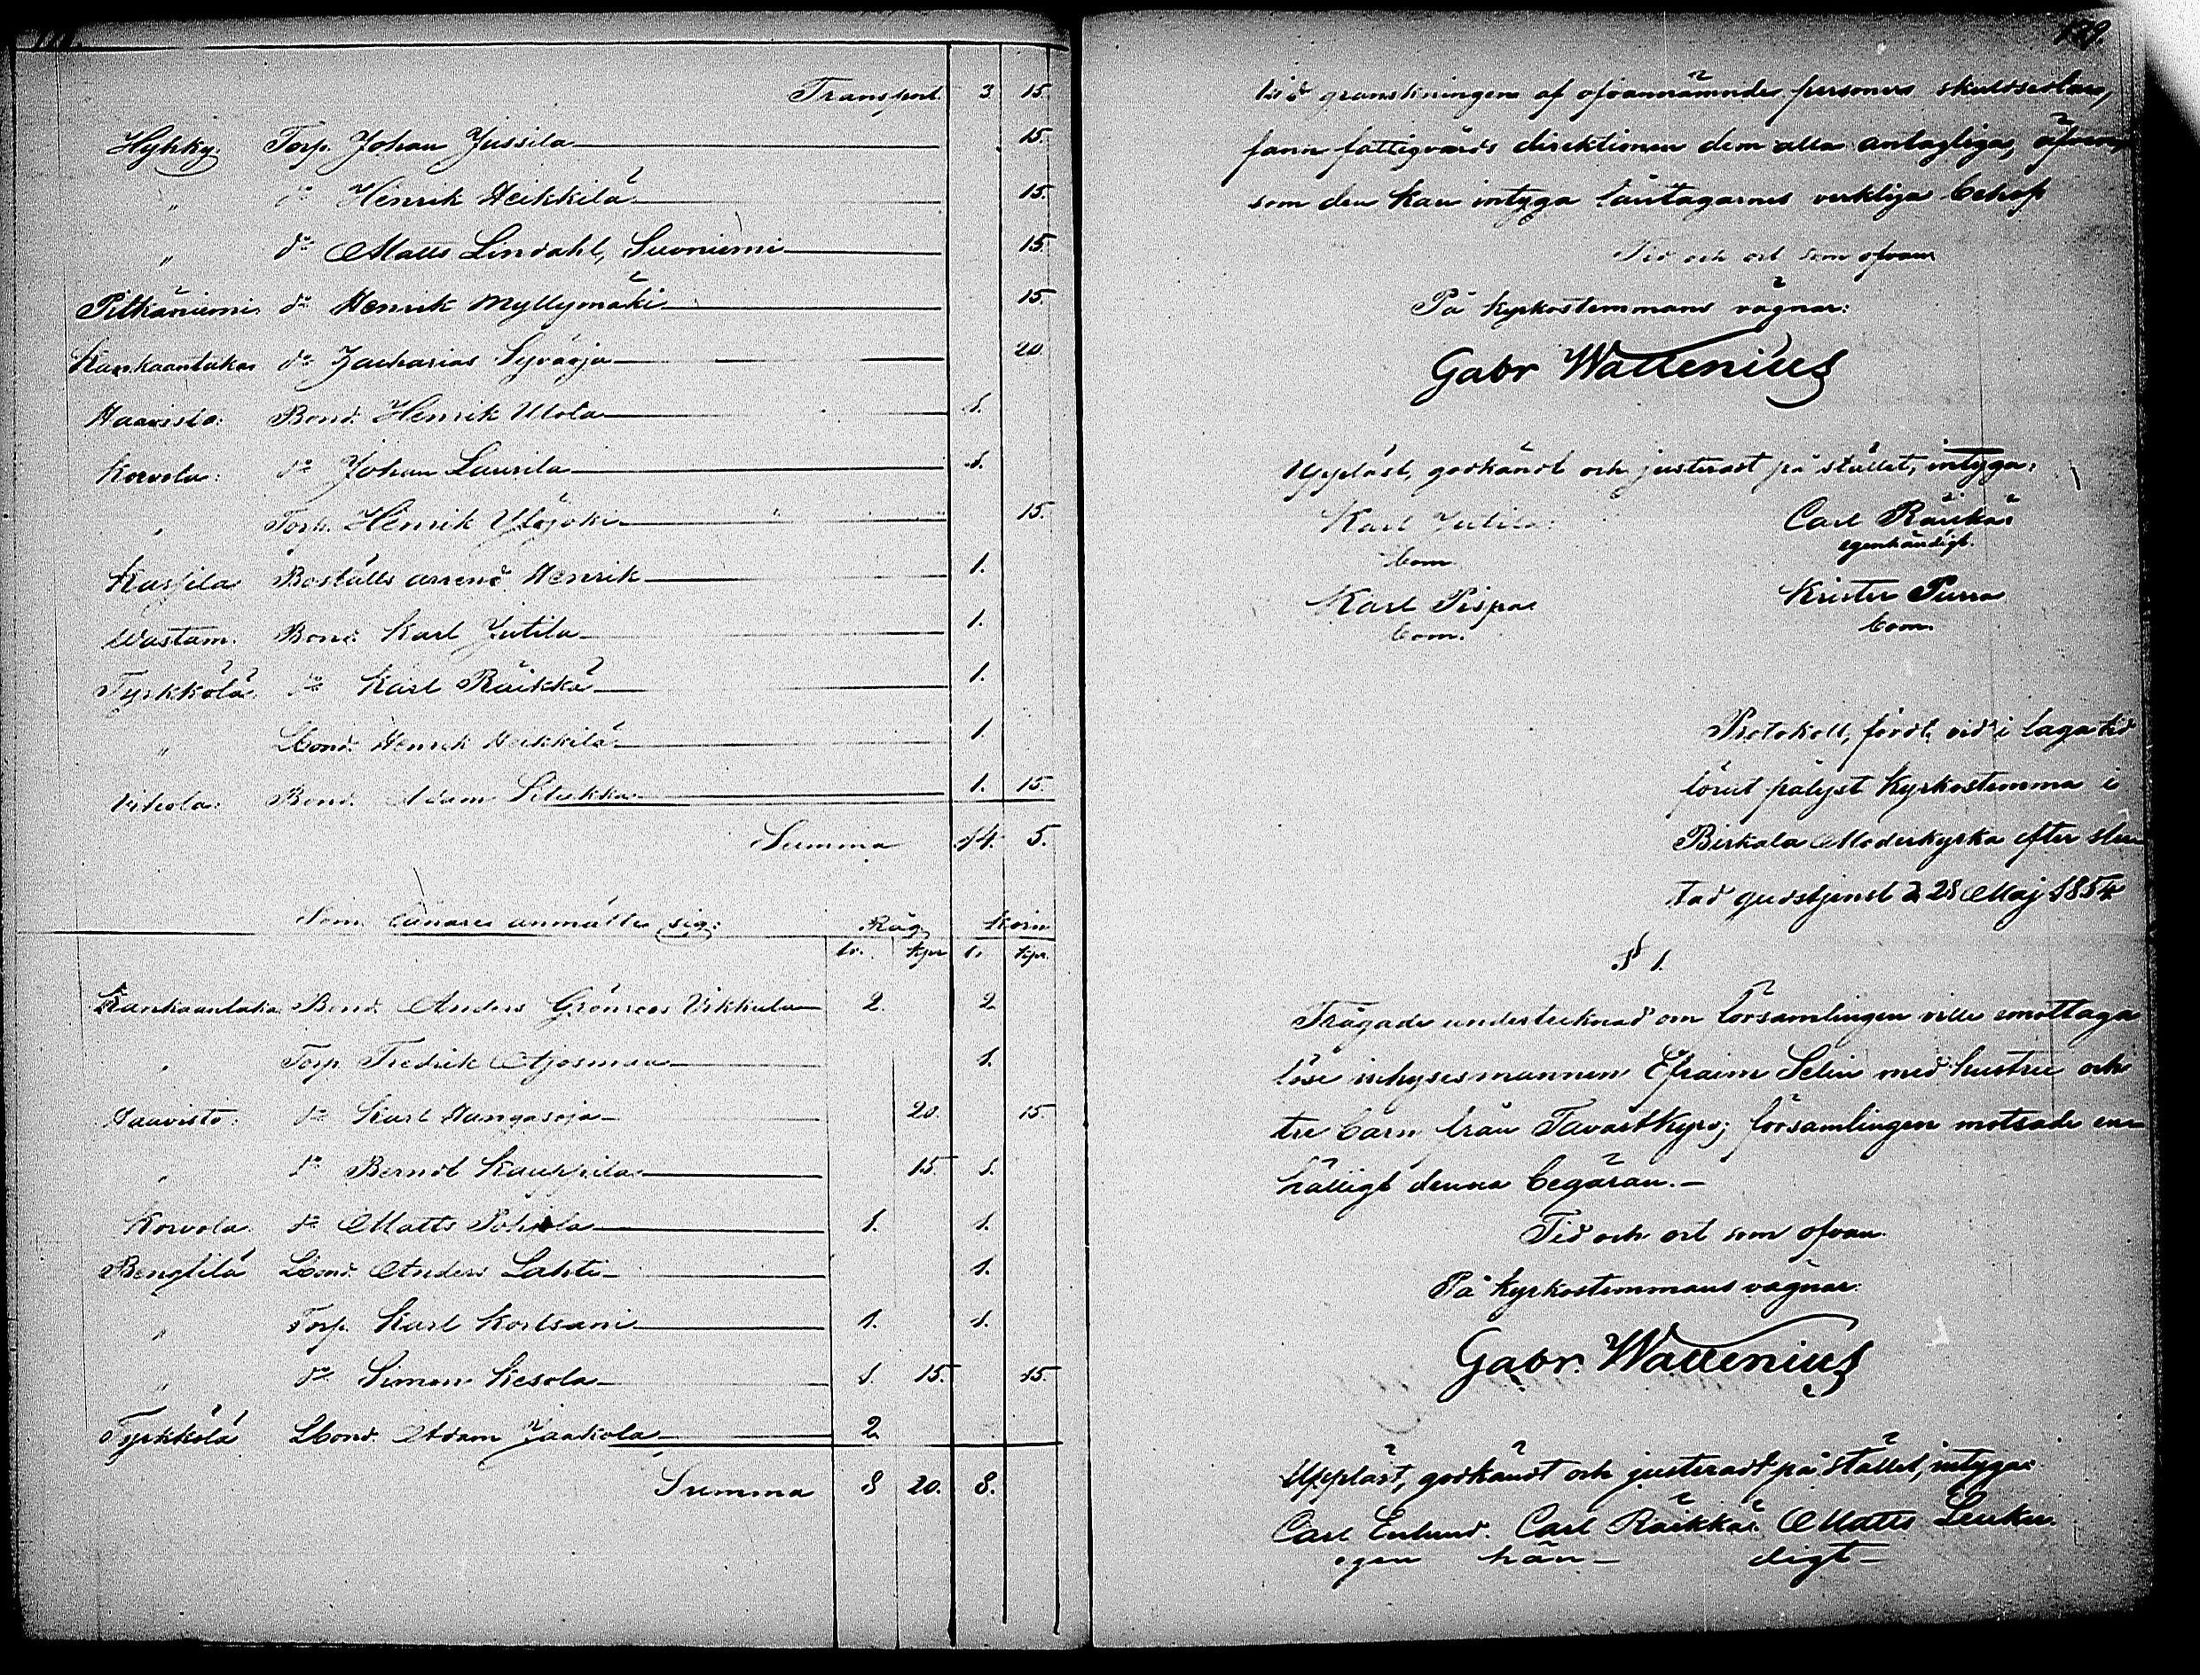 Transport. 3. 15.
Hyhky. Torp. Johan Jussila 15.
" do Henrik Heikkilä 15.
" do Matts Lindahl, Suoniemi 15.
Pitkäniemi. do Henrik Myllymäki 15.
Kankaantaka do Zacharias Syväoja 20.
Haavisto: Bond. Henrik Utola 1.
Korvola: do Johan Laurila 1.
" Torp. Henrik Ylöjoki 15.
Kassila Boställs arrend. Henrik 1.
Wastam. Bond. Karl Jutila 1.
Tyrkkölä do Karl Räikkä 1.
" Lbond. Henrik Heikkilä 1.
Vihola: Bond. Adam 1. 15.
Summa 14. 5.
Som lånare anmälte sig: Råg Korn
t. kpr t. kpr.
Kankaantaka Bond. Anders Grönroos Vikkula 2. 2.
" Torp. Fredrik 1.
Haavisto: do Karl Hangasoja 20. 15.
" do Berndt Kauppila 15. 1.
Korvola. do Matts Pohjola 1. 1.
Bengtilä Lbond. Anders Lahti 1.
" Torp. Karl Kortsani 1. 1.
" do Simon Kesola 1. 15. 15.
Tyrkkölä Lbond. Adam Jaakola 2
Summa 8 20. 8.
129.
Vid granskningen af ofvannämndes personers skuldsedlar,
fann fattigvårds direktionen dem alla antagliga, äfven
som den kan intyga låntagarnes verkliga behof
Tid och ort som ofvan
På Kyrkostemmans vägnar:
Gabr Wallenius
Uppläst, godkändt och justerast på stället, intyga:
Karl Jutila: Carl Räikkä
bom egenhändigt.
Karl Pispa Krister Purra
bom. bom.
Protokoll, fördt vid i laga tid
förut pålyst Kyrkostemma i
Birkala Moderkyrka efter slu-
tad gudstjenst d 28 Maj 1854
§ 1.
Frågade undertecknad om församlingen ville emottaga
löse inhysesmannen Efraim Selin med hustru och
tre barn från Tavastkyro; församlingen motsade en-
hälligt denna begäran. –
Tid och ort som ofvan.
På Kyrkostemmans vägnar:
Gabr. Wallenius
Uppläst, godkändt och justeradt på stället, intyga:
Carl Enlund. Carl Räikkä. Matts Leuku.
egen hän– digt–